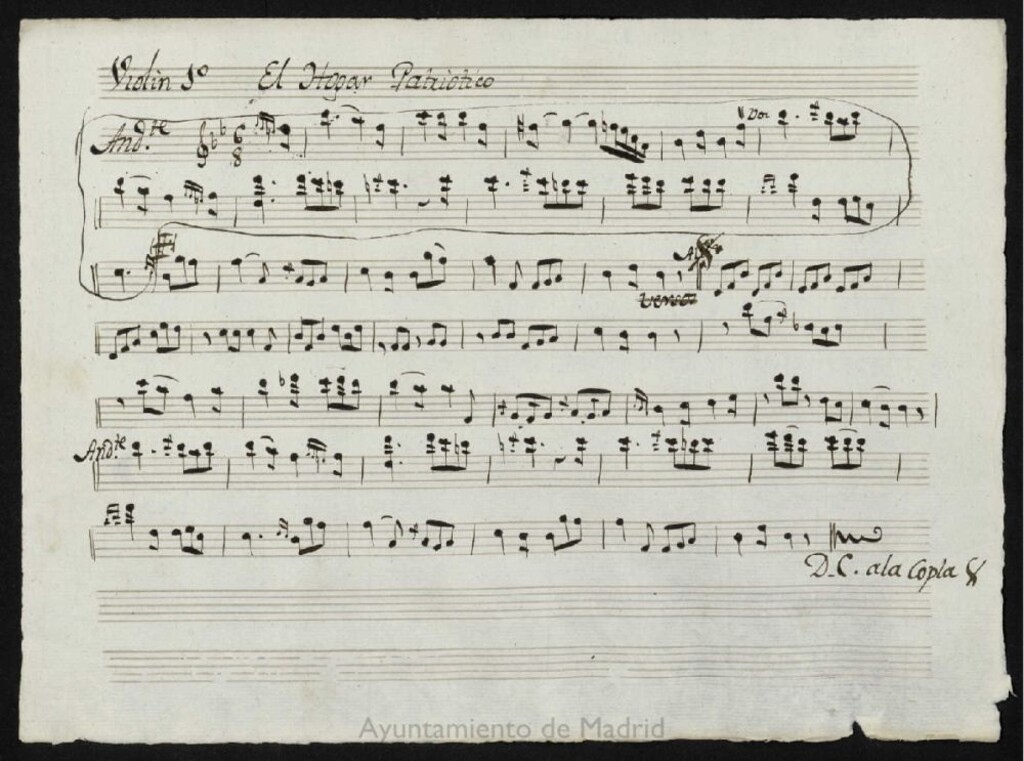 Violin 1º El Hogar Patriotico
And.te 6 8 Dol
verso
And.te
D.C. ala Copla
Ayuntamiento de Madrid